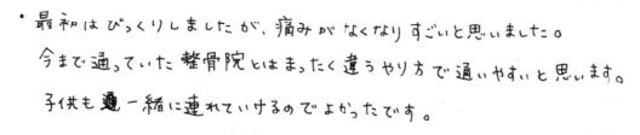 ・最初はびっくりしましたが、痛みがなくなりすごいと思いました。
今まで通っていた整骨院とはまったく違うやり方で通いやすいと思います。
子供も一緒に連れていけるのでよかったです。